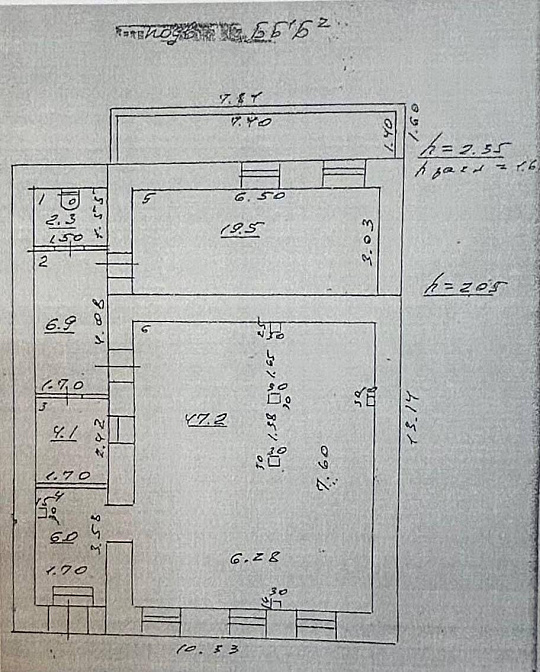 7.84
7.40
1.40
1.60
h = 2.35
1
2.3
1.50
1.55
5
6.50
19.5
3.03
h = 2.05
2
6.9
4.08
1.70
6
25
30
1.65
30
30
1.38
30
30
47.2
7.60
13.14
3
4.1
2.42
1.70
4
30
6.0
3.58
1.70
6.28
30
10.53